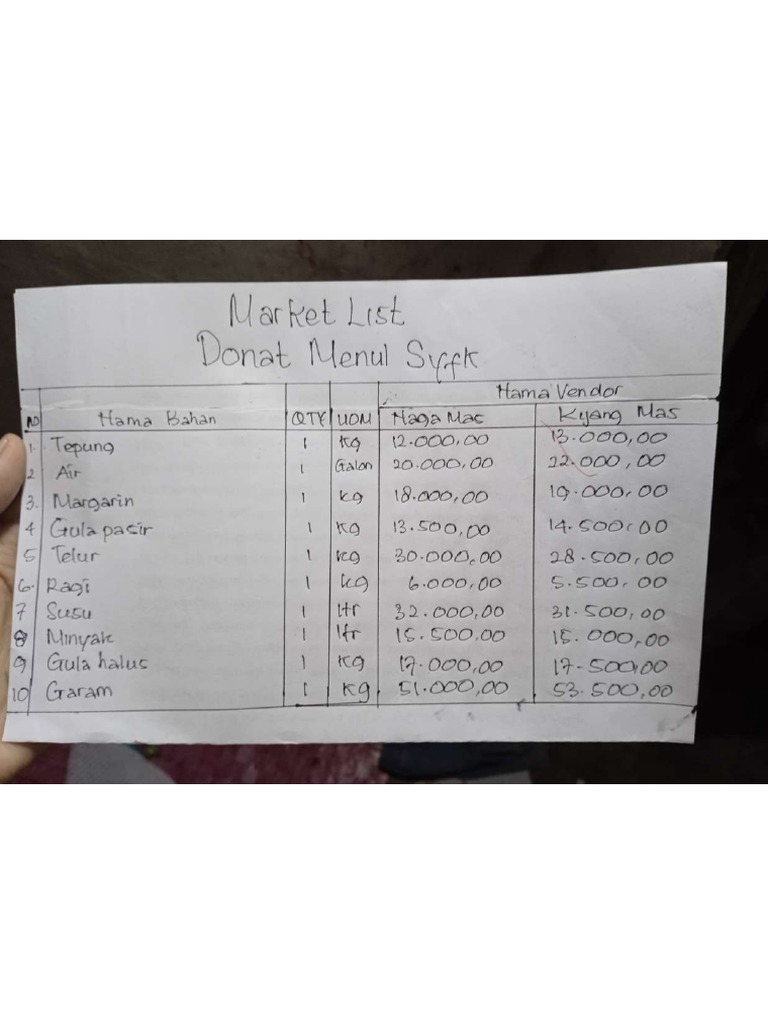 Market List
Donat Menul Syfk
Nama Vendor
No Nama Bahan QTY UOM Naga Mas Kyang Mas
1. Tepung 1 Kg 12.000,00 13.000,00
2 Air 1 Galon 20.000,00 22.000,00
3. Margarin 1 kg 18.000,00 19.000,00
4 Gula pasir 1 Kg 13.500,00 14.500,00
5 Telur 1 kg 30.000,00 28.500,00
6. Ragi 1 kg 6.000,00 5.500,00
7 Susu 1 ltr 32.000,00 31.500,00
8 Minyak 1 ltr 15.500,00 15.000,00
9 Gula halus 1 Kg 17.000,00 17.500,00
10 Garam 1 Kg 51.000,00 53.500,00